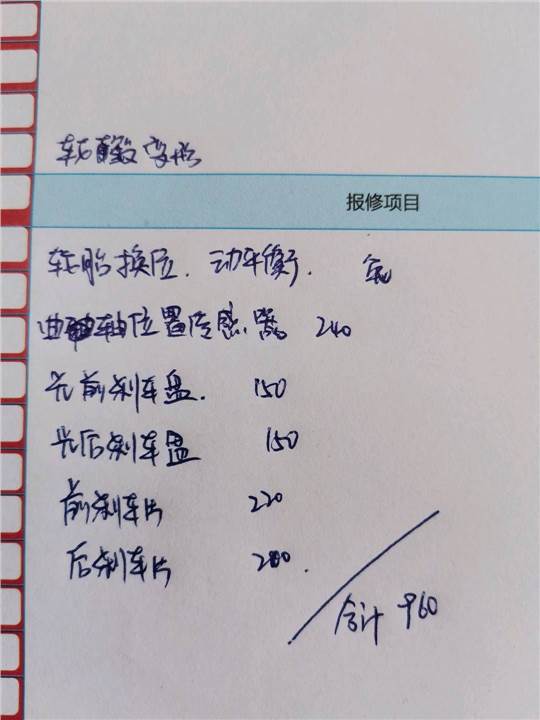 轮毂变形
报修项目
轮胎换位.动平衡.免
曲轴位置传感器 240
光前刹车盘. 150
光后刹车盘 150
前刹车片 220
后刹车片 200.
合计 960